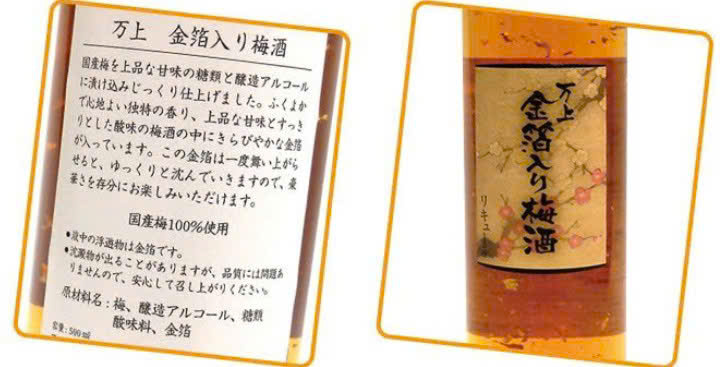 万上 金箔入り梅酒
国産梅を上品な甘味の糖類と醸造アルコール
に漬け込みじっくり仕上げました。ふくよか
で心地よい独特の香り、上品な甘味とすっき
りとした酸味の梅酒の中にきらびやかな金箔
が入っています。この金箔は一度舞い上がら
せると、ゆっくりと沈んでいきますので、豪
華さを存分にお楽しみいただけます。
国産梅100%使用
●液中の浮遊物は金箔です。
●沈澱物が出ることがありますが、品質には問題あ
りませんので、安心して召し上がりください。
原材料名：梅、醸造アルコール、糖類
酸味料、金箔
容量：500ml
万上
金箔入り梅酒
リキュー